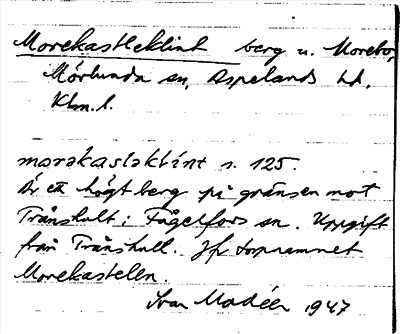 Morekastleklint berg u. Morebo,
Mörlunda sn, Aspelands hd,
Klm. l.
morakastaklint s. 125.
Är ett högt berg på gränsen mot
Trånshult i Fågelfors sn. Uppgift
från Trånshult. Jfr topnamnet
Morekastelen.
Ivar Modéer 1947